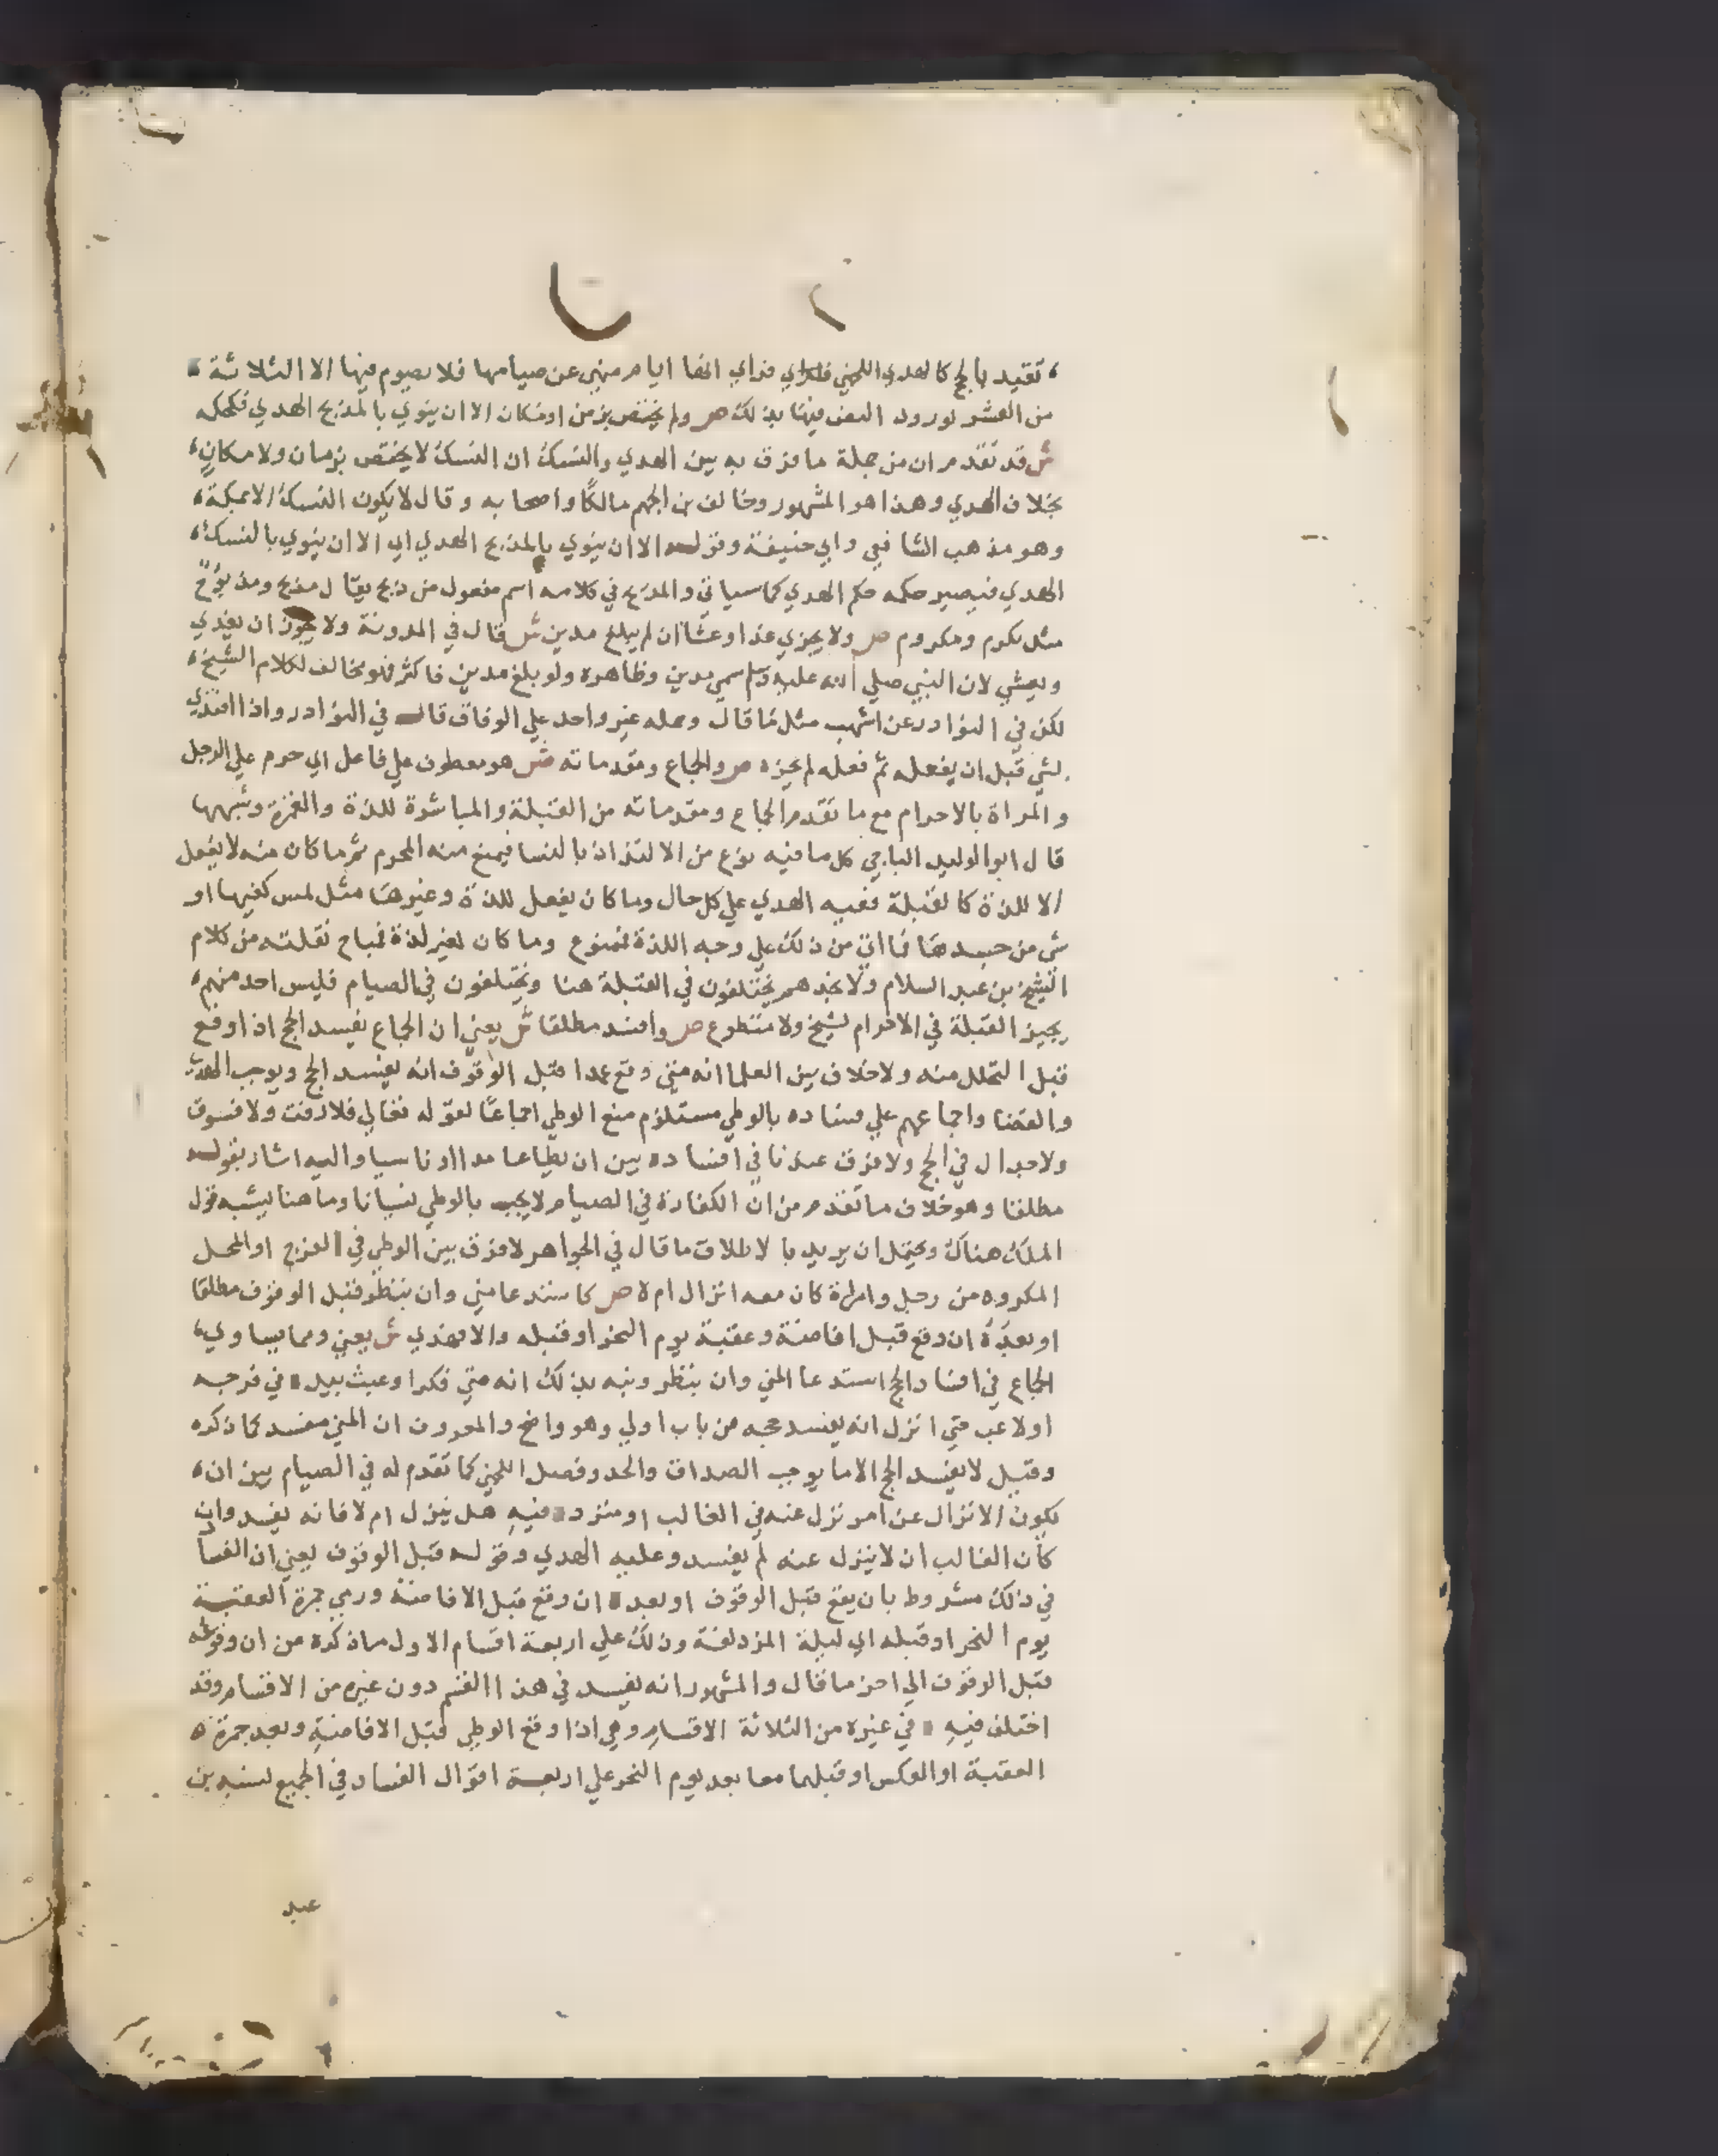 تقيد بالحج كالهدي اللخمي فراي انها ايام منهي عن صيامها فلا يصوم فيها الا الثلاثة
من العشر لورود النص فيها بذلك ص ولم يختص بزمن او مكان الا ان ينوي بالمذبح الهدي فكحكمه
ش قد تقدم ان من جملة ما فرق به بين الهدي والنسك ان النسك لا يختص بزمان ولا مكان
بخلاف الهدي وهذا هو المشهور وخالف بن الجهم مالكا واصحابه وقال لا يكون النسك الا بمكة
وهو مذهب الشافعي وابي حنيفة وقوله الا ان ينوي بالمذبح الهدي اي الا ان ينوي بالنسك
الهدي فيصير حكمه حكم الهدي كما سياتي والمذبح في كلامه اسم مفعول من ذبح يقال مذبح ومذبوح
مثل مكرم ومكروم ص ولا يجزي غدا وعشا ان لم يبلغ مدين ش قال في المدونة ولا يجزي ان يغدي
ويعشي لان النبي صلي الله عليه وسلم سمي مدين وظاهره ولو بلغ مدين فاكثر فهو مخالف لكلام الشيخ
لكن في النوادر عن اشهب مثل ما قال وحمله غير واحد علي الوفاق قال في النوادر واذا افتدي
لشي قبل ان يفعله ثم فعله لم يجزه ص والجماع ومقدماته ش هو معطوف علي فاعل اي حرم علي الرجل
والمراة بالاحرام مع ما تقدم الجماع ومقدماته من القبلة والمباشرة للذة والغمزة وشبهها
قال ابو الوليد الباجي كل ما فيه نوع من الالتذاذ بالنسا فيمنع منه المحرم ثم ما كان منه لا يفعل
الا للذة كالقبلة ففيه الهدي علي كل حال وما كان يفعل للذة وغيرها مثل لمس كفيها او
شي من جسدها فما اتي من ذلك علي وجه اللذة فممنوع وما كان لغير لذة فمباح نقلته من كلام
الشيخ بن عبد السلام ولا نجدهم يختلفون في القبلة هنا ويختلفون في الصيام فليس احد منهم
يجيز القبلة في الاحرام لشيخ ولا متطوع ص وافسد مطلقا ش يعني ان الجماع يفسد الحج اذا وقع
قبل التحلل منه ولا خلاف بين العلما انه متي وقع عمدا قبل الوقوف انه يفسد الحج ويوجب الهدي
والقضا واجماعهم علي فساده بالوطي مستلزم منع الوطي اجماعا لقوله تعالي فلا رفث ولا فسوق
ولا جدال في الحج ولا فرق عندنا في افساده بين ان يطا عامدا او ناسيا واليه اشار بقوله
مطلقا وهو خلاف ما تقدم من ان الكفارة في الصيام لا يجب بالوطي نسيانا وما هنا يشبه قول
الملك هناك ويحتمل ان يريد بالاطلاق ما قال في الجواهر لا فرق بين الوطي في الفرج او المحل
المكروه من رجل وامراة كان معه انزال ام لا ص كاستدعا مني وان بنظر قبل الوقوف مطلقا
او بعده ان وقع قبل افاضة وعقبة يوم النحر او قبله والا فهدي ش يعني ومما يساوي
الجماع في افساد الحج استدعا المني وان بنظر ونبه بذلك انه متي فكر او عبث بيده في فرجه
او لاعب متي انزل انه يفسد حجه من باب اولي وهو واضح والمعروف ان المني مفسد كما ذكره
وقيل لا يفسد الحج الا ما يوجب الصداق والحد وفصل اللخمي كما تقدم له في الصيام بين ان
يكون الانزال عن امر نزل عنه في الغالب او متردد فيه هل ينزل ام لا فانه يفسد وان
كان الغالب ان لا ينزل عنه لم يفسد وعليه الهدي وقوله قبل الوقوف يعني ان الفسا
في ذلك مشروط بان يقع قبل الوقوف او بعده ان وقع قبل الافاضة ورمي جمرة العقبة
يوم النحر او قبله اي ليلة المزدلفة وذلك علي اربعة اقسام الاول ما ذكره من ان وقوعه
قبل الوقوف الي اخر ما قال والمشهور انه يفسد في هذا القسم دون غيره من الاقسام وقد
اختلف فيه في غيره من الثلاثة الاقسام وهي اذا وقع الوطي قبل الافاضة وبعد جمرة
العقبة او العكس او قبلهما معا بعد يوم النحر علي اربعة اقوال الفساد في الجميع لسند بن
عبد